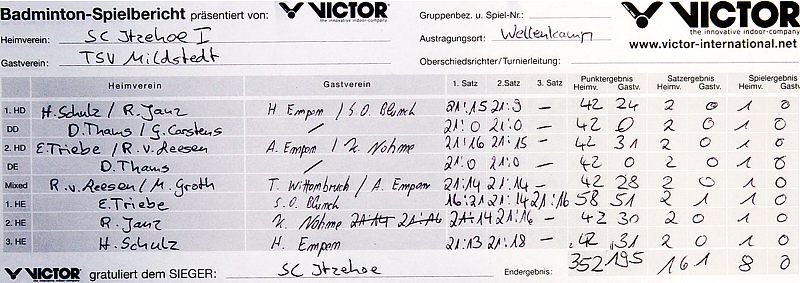 Badminton-Spielbericht präsentiert von: VICTOR the innovative indoor-company Gruppenbez. u. Spiel-Nr.: VICTOR the innovative indoor-company
Heimverein: SC Itzehoe I Austragungsort: Wellenkamp www.victor-international.net
Gastverein: TSV Mildstedt Oberschiedsrichter/Turnierleitung:
Heimverein Gastverein 1. Satz 2.Satz 3. Satz Punktergebnis Satzergebnis Spielergebnis
Heimv. Gastv. Heimv. Gastv. Heimv. Gastv.
1. HD H. Schulz / R. Janz H. Empen / S.O. 21:15 21:9 – 42 24 2 0 1 0
DD D. Thams / G. Carstens / 21:0 21:0 – 42 0 2 0 1 0
2. HD E. Triebe / R. v. Leesen A. Empen / K. Nohme 21:16 21:15 – 42 31 2 0 1 0
DE D. Thams / 21:0 21:0 – 42 0 2 0 1 0
Mixed R. v. Leesen / M. Groth T. / A. Empen 21:14 21:14 – 42 28 2 0 1 0
1. HE E. Triebe S.O. 16:21 21:14 21:16 58 51 2 1 1 0
2. HE R. Janz K. Nohme 21:14 21:16 21:14 21:16 – 42 30 2 0 1 0
3. HE H. Schulz H. Empen 21:13 21:18 – 42 31 2 0 1 0
VICTOR gratuliert dem SIEGER: SC Itzehoe Endergebnis: 352 195 16 1 8 0